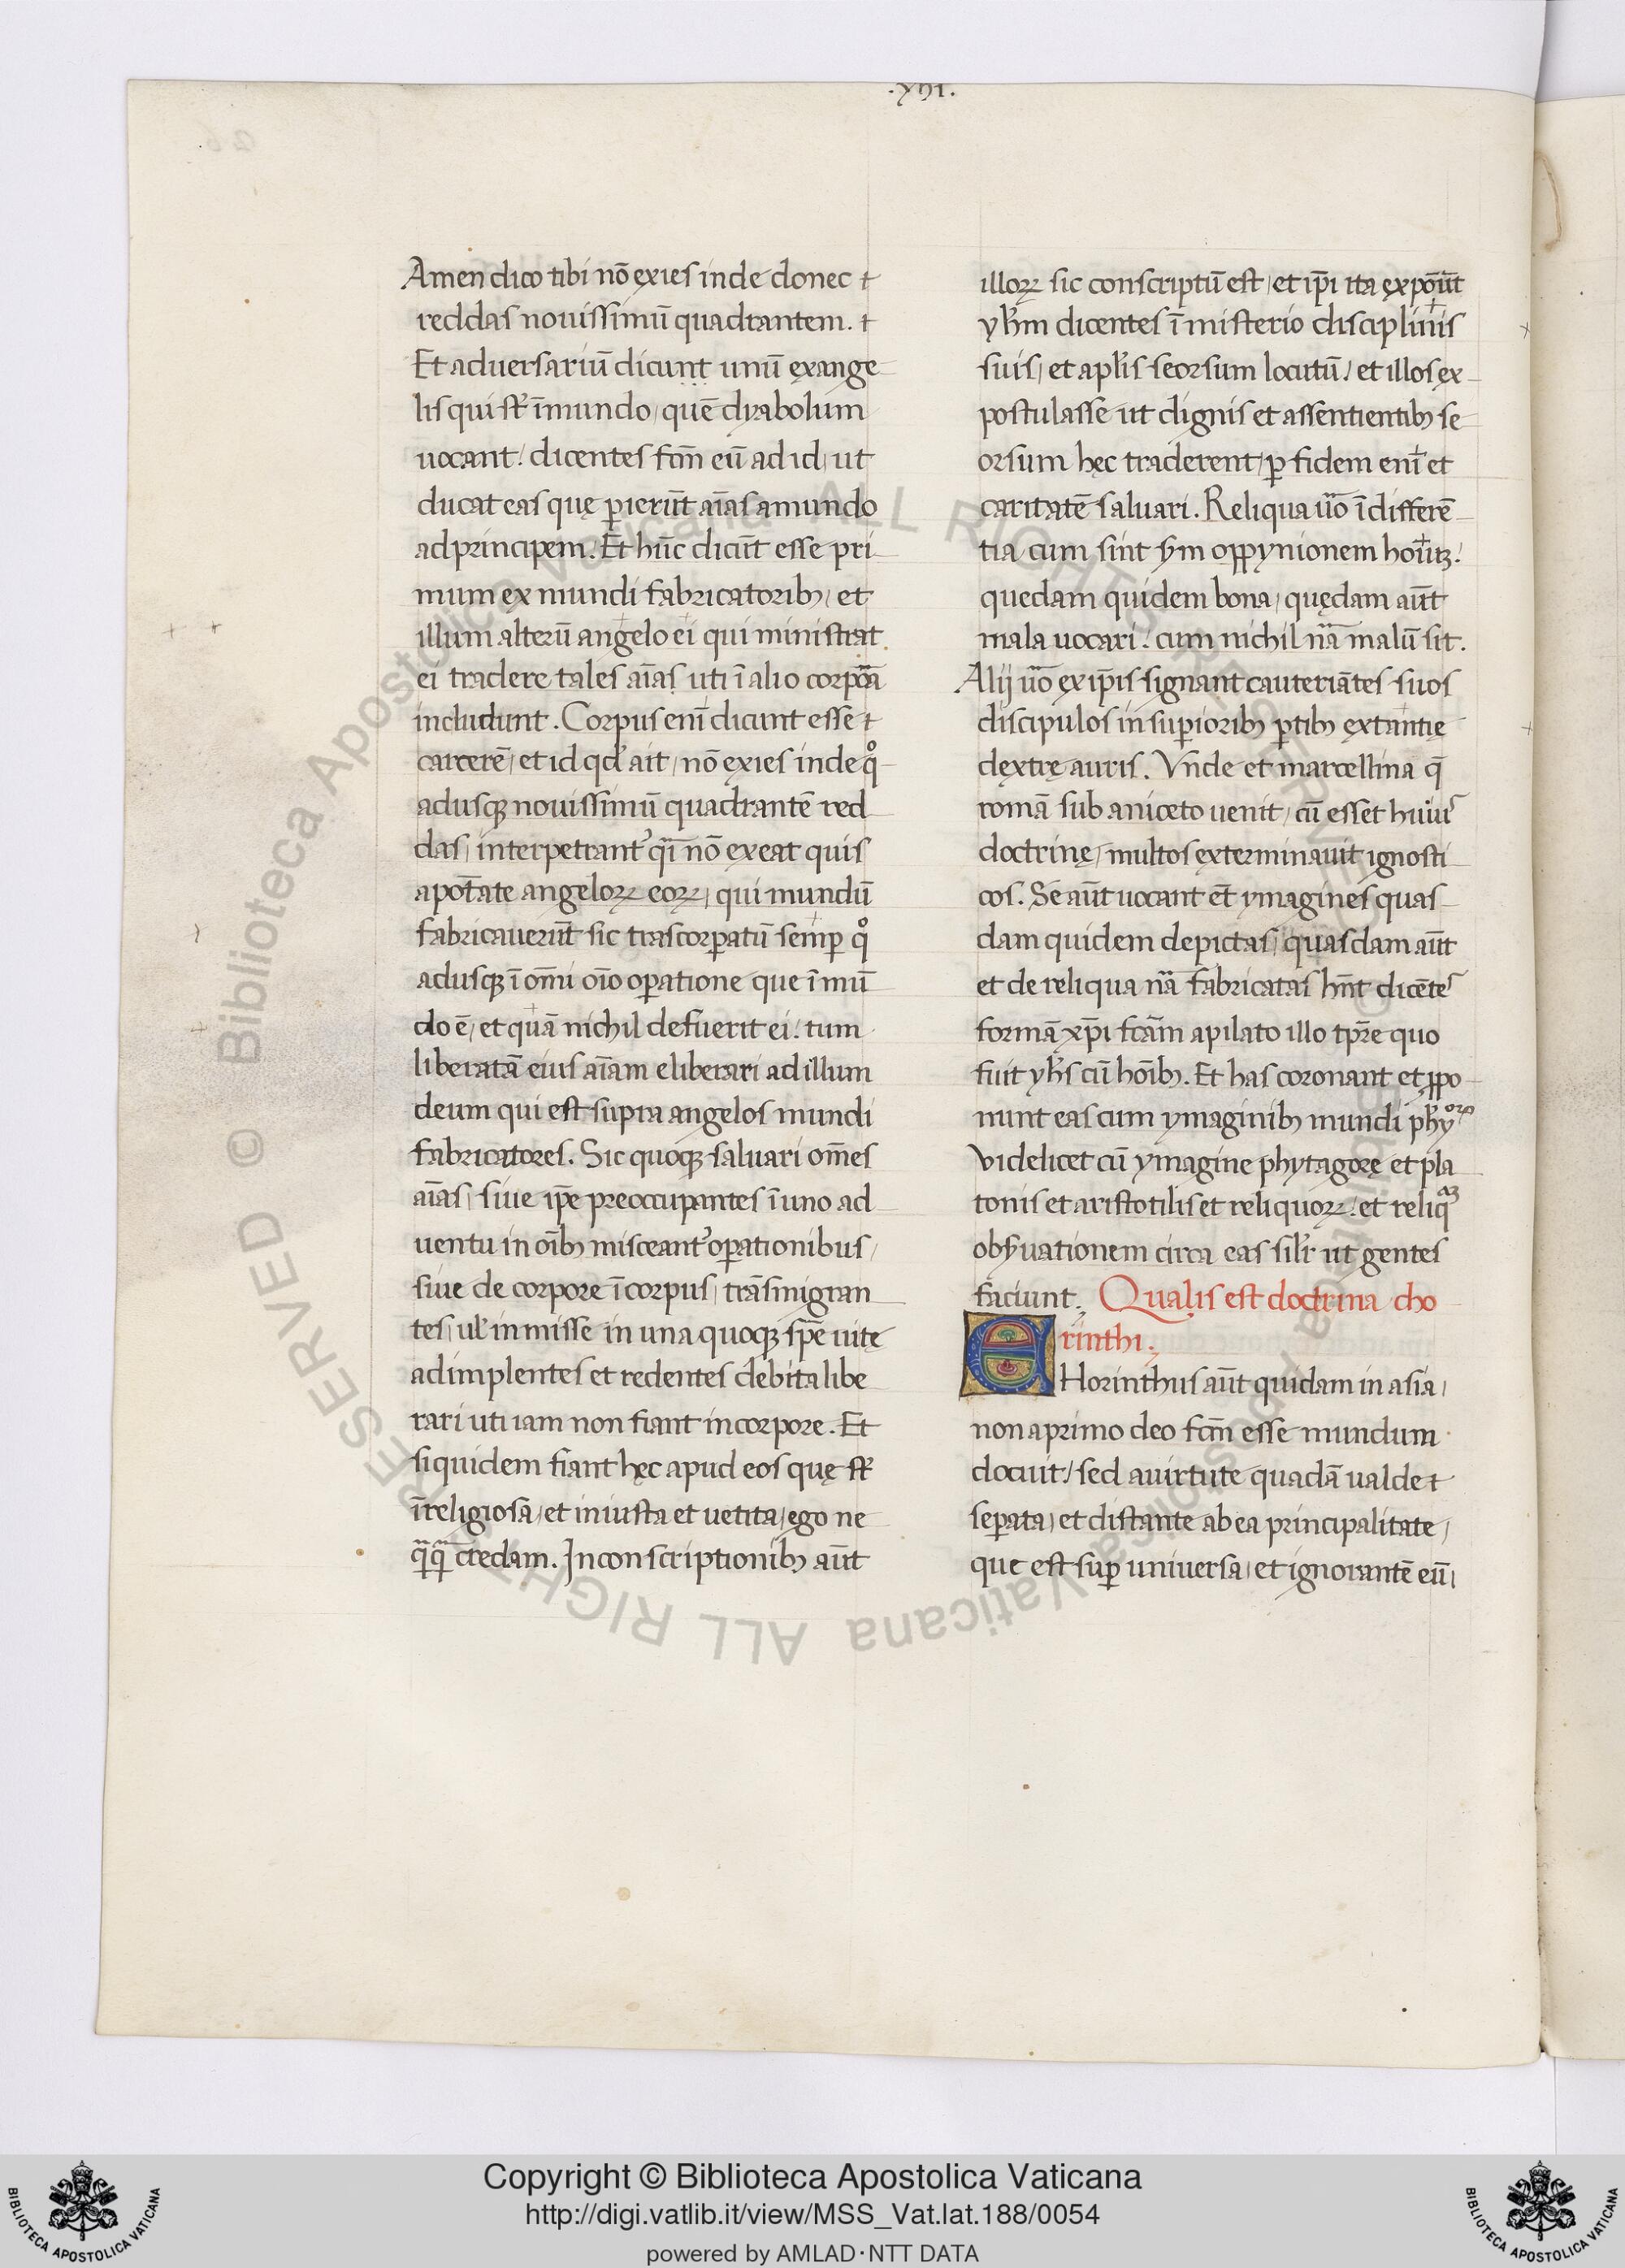 .xhi.
Amen dico tibi nō exies inde donec
reddas nouissimū quadrantem.
Et aduersariū dicunt unū ex ange
lis qui st̄ ī mundo, quē dyabolum
uocant. dicentes fc̄m eū ad id, ut
ducat eas que ꝑierūt aīas a mundo
ad principem. Et hūc dicūt esse pri
mum ex mundi fabricatorib; et
illum alterū angelo ei qui ministrat
ei tradere tales aīas uti ī alio corpora
includunt. Corpus enī dicunt esse
carcerē, et id qd̓ ait, nō exies inde qͦ
adusq; nouissimū quadrantē red
das, interpetrant᷑ qī nō exeat quis
a potāte angeloꝝ eoꝝ, qui mundū
fabricauerūt sic trascorꝑatū semꝑ qͦ
adusq; ī om̄i oīo oꝑatione que ī mū
do ē, et quā nichil defuerit ei. tum
liberatā eius aīam eliberari ad illum
deum qui est supra angelos mundi
fabricatores. Sic quoq; saluari om̄es
aīas, siue ip̄e preoccupantes ī uno ad
uentu in oīb; misceant᷑ oꝑationibus,
siue de corpore ī corpus, trāsmigran
tes, ul̓ inmisse in una quoq; spē uitę
adimplentes et redentes debita libe
rari uti iam non fiant in corpore. Et
siquidem fiant hęc apud eos quę st̄
īreligiosa, et iniusta et uetita, ego ne
q̄q̄ credam. In conscriptionib; aūt
illoꝝ sic conscriptū est, et ip̄i ita expoūt
yh̄m dicentes ī misterio disciplinis
suis, et apl̓is seorsum locutū. et illos ex
postulasse ut dignis et assentientib; se
orsum hęc traderent, ꝑ fidem enī et
caritatē saluari. Reliqua ūo īdifferē
tia cum sint s̄m oppynionem hoīuꝫ.
quedam quidem bona, quędam aūt
mala uocari. cum nichil nā malū sit.
Alij ūo ex ip̄is signant cauteriātes suos
discipulos in suꝑiorib; ꝑtib; extantię
dextrę auris. Vnde et marcellina q̄
romā sub aniceto uenit, cū esset huiu᷑
doctrinę, multos exterminauit ignosti
cos. Se aūt uocant et̄ ymagines quas
dam quidem depictas, quasdam aūt
et de reliqua nā fabricatas hn̄t dicēte᷑
formā xp̄i fcām a pilato illo tp̄re quo
fuit yh̄s cū hoīb;. Et has coronant et ꝓpo
nunt eas cum ymaginib; mundi ph̄yoꝝ
Videlicet cū ymagine phytagorę et pla
tonis et aristotilis et reliquoꝝ. et reliqᵃꝫ
obs̄uationem circa eas sil̓r ut gentes
faciunt. Qualis est doctrina cho
rinthi.
CHorinthus aūt quidam in asia,
non a primo deo fc̄m esse mundum
docuit, sed a uirtute quadā ualde
seꝑata, et distante ab ea principalitate,
que est suꝑ uniuersa, et ignorantē eū,
Copyright © Biblioteca Apostolica Vaticana
http://digi.vatlib.it/view/MSS_Vat.lat.188/0054
powered by AMLAD·NTT DATA
© Biblioteca Apostolica Vaticana ALL RIGHTS RESERVED
BIBLIOTECA APOSTOLICA VATICANA
BIBLIOTECA APOSTOLICA VATICANA